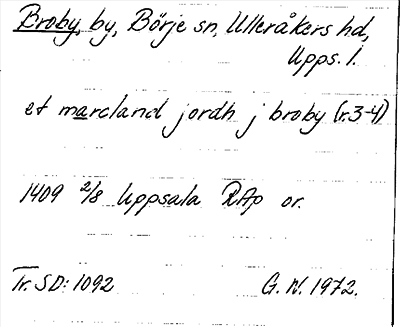 Broby, by, Börje sn, Ulleråkers hd,
Upps. l.
et marcland jordh j broby (r.3-4)
1409 2/8 Uppsala RAp or.
Tr. SD: 1092 G. W. 1972.